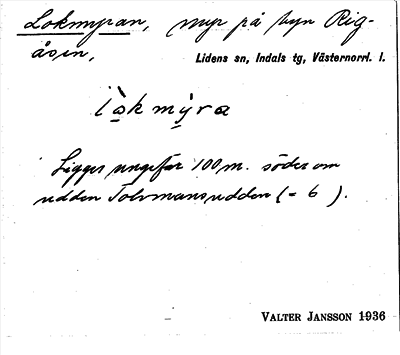 Lokmyran, myr på byn Rig-
åsen,
Lidens sn, Indals tg, Västernorrl. l.
lo̲kmỳ̲ra
Ligger ungefär 100 m. söder om
udden Tolvmansudden (= 6 ).
VALTER JANSSON 1936